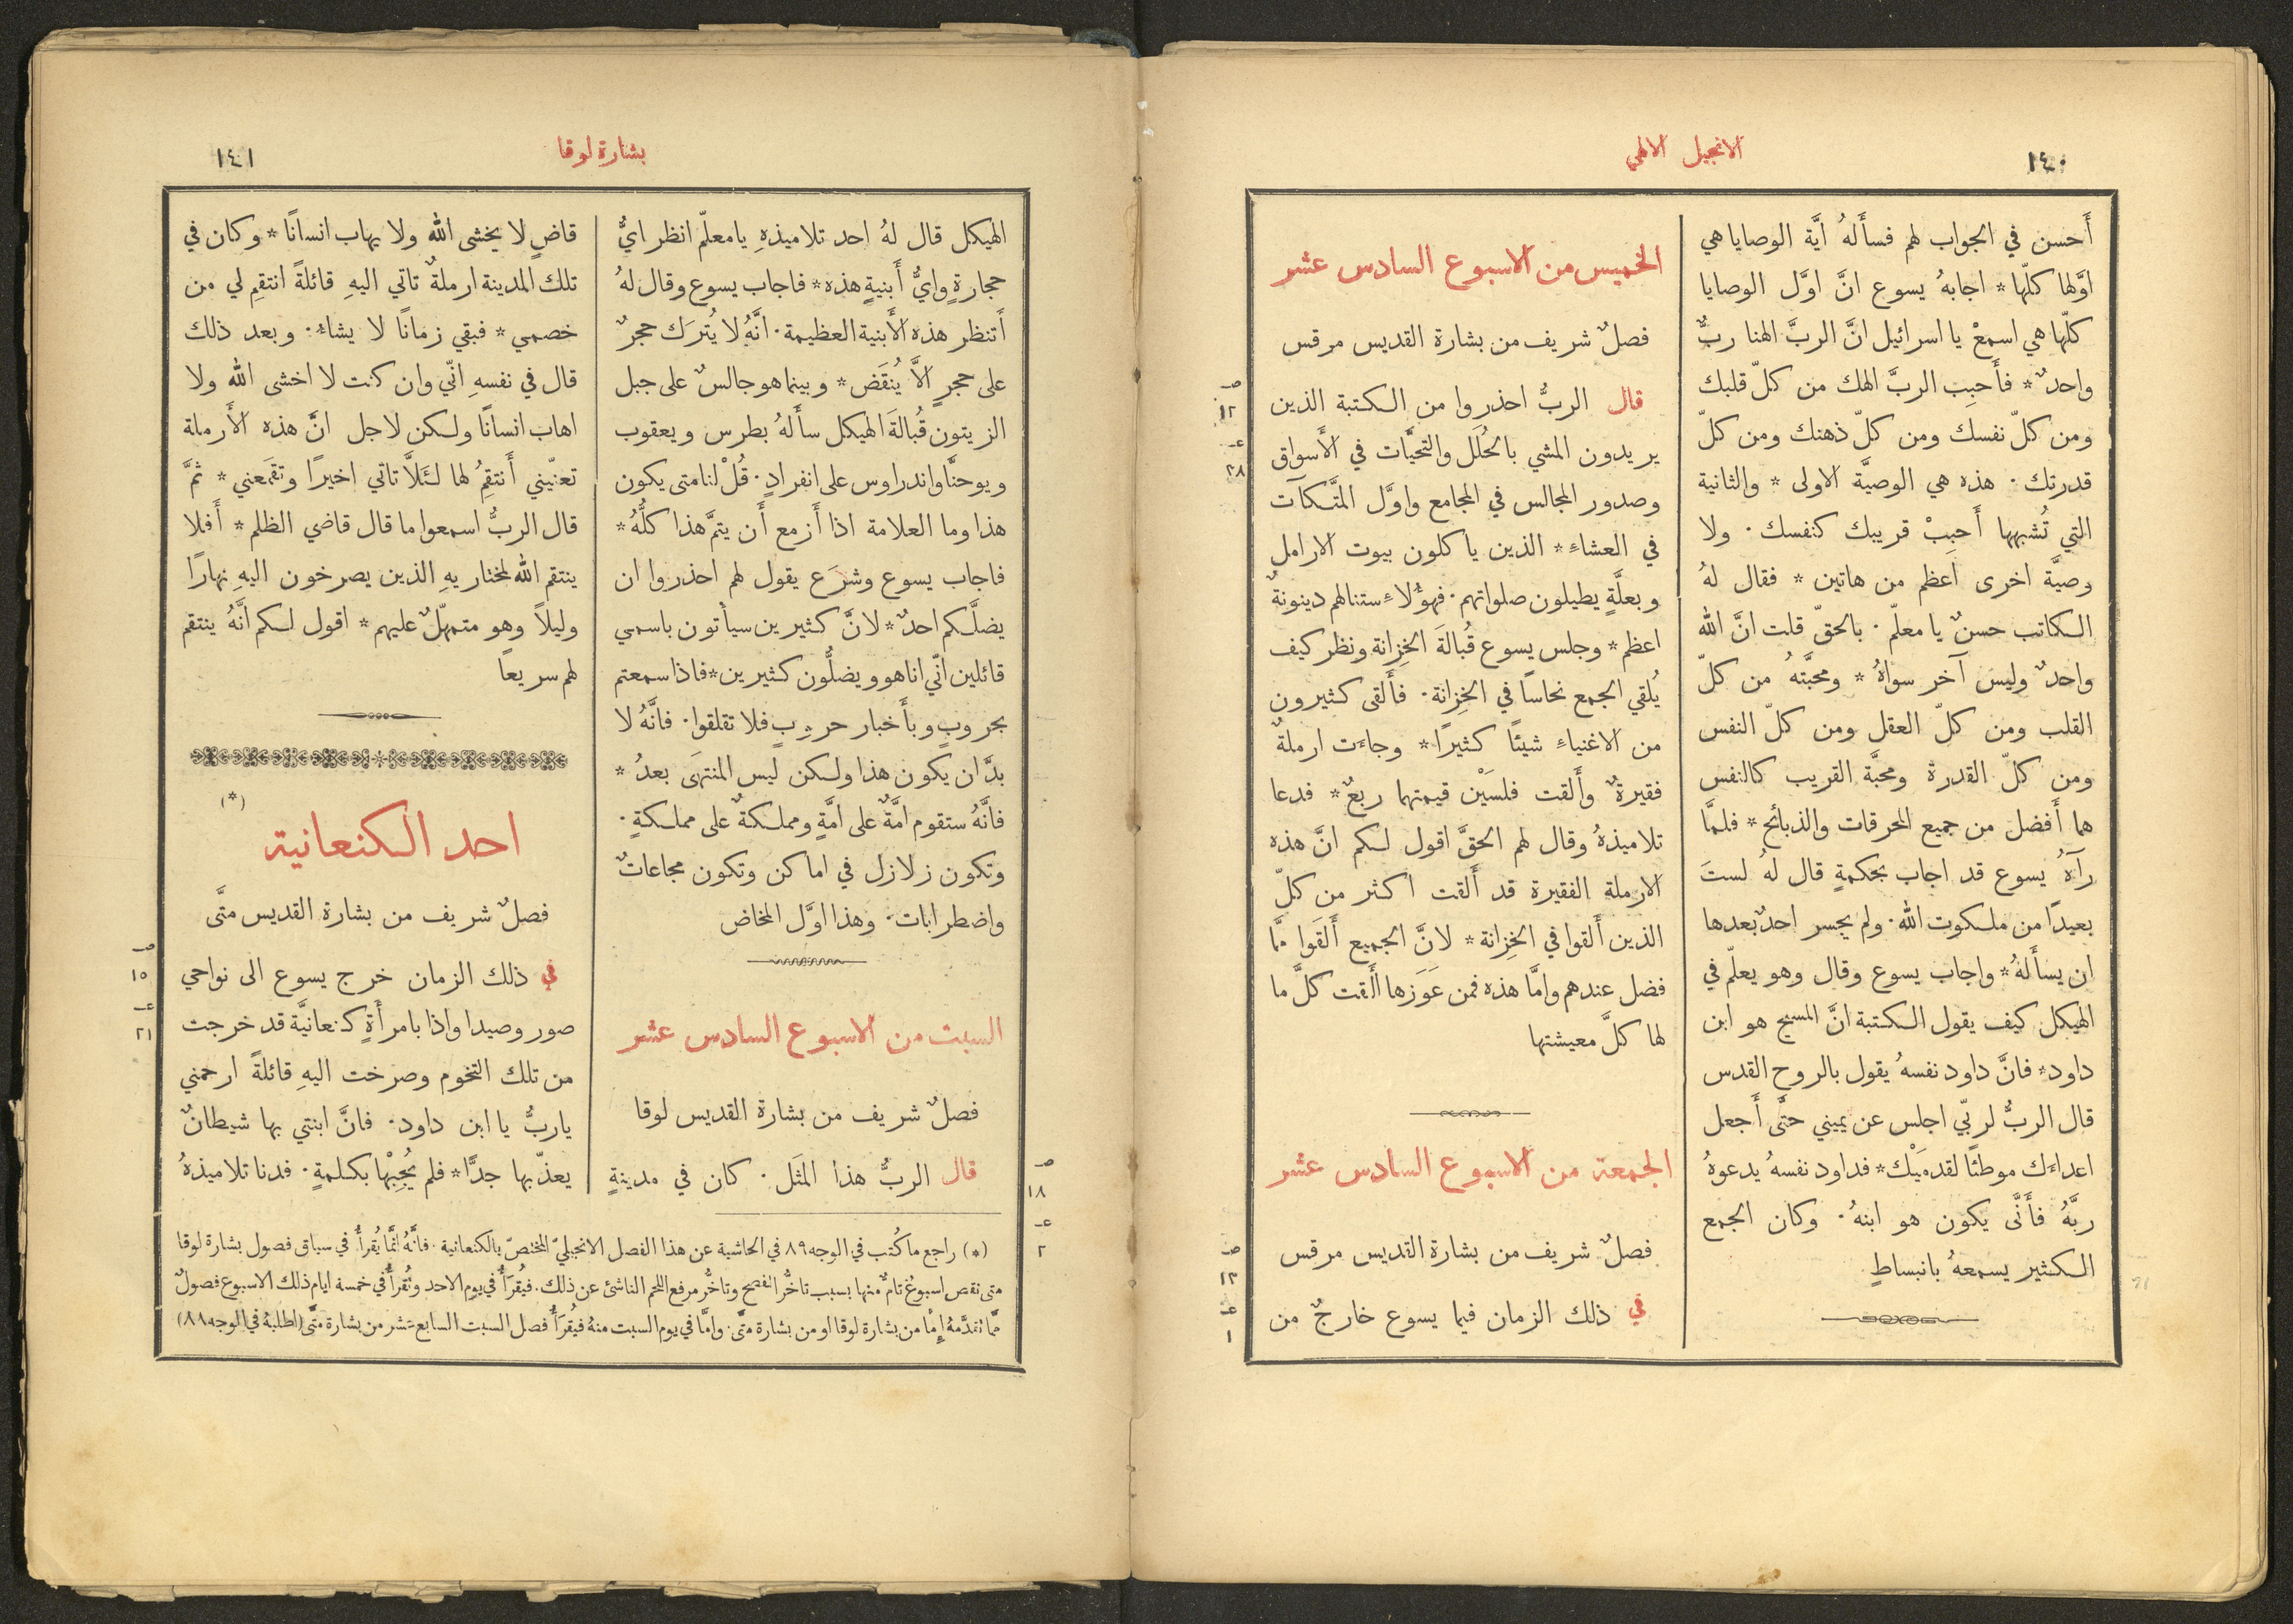 ١٤٠
الانجيل الالهي
أَحسن في الجواب لهم فسأَلهُ ايَّة الوصايا هي
اوَّلها كلّها * اجابهُ يسوع انَّ اوَّل الوصايا
كلّها هي اسمعْ يا اسرائيل انَّ الربَّ الهنا ربٌّ
واحدٌ * فأَحبِب الربَّ الهك من كلّ قلبك
ومن كلّ نفسك ومن كلّ ذهنك ومن كلّ
قدرتك ٠ هذه هي الوصيَّة الاولى * والثانية
التي تُشبهها أَحبِبْ قريبك كنفسك ٠ ولا
وصيَّة اخرى اعظم من هاتين * فقال لهُ
الكاتب حسنٌ يا معلّم ٠ بالحقّ قلت انَّ الله
واحدٌ وليس آخر سواهُ * ومحبَّتهُ من كلّ
القلب ومن كلّ العقل ومن كلّ النفس
ومن كلّ القدرة ومحبَّة القريب كالنفس
هما أَفضل من جميع المحرقات والذبائح * فلمَّا
رآهُ يسوع قد اجاب بحكمةٍ قال لهُ لستَ
بعيدًا من ملكوت الله ٠ ولم يجسر احدٌ بعدها
ان يسأَلهُ * واجاب يسوع وقال وهو يعلّم في
الهيكل كيف يقول الكتبة انَّ المسيح هو ابن
داود * فانَّ داود نفسهُ يقول بالروح القدس
قال الربُّ لربّي اجلس عن يميني حتَّى أَجعل
اعداءَك موطئًا لقدمَيْك * فداود نفسهُ يدعوهُ
ربَّهُ فأَنَّى يكون هو ابنهُ ٠ وكان الجمع
الكثير يسمعهُ بانبساطٍ
الخميس من الاسبوع السادس عشر
فصلٌ شريف من بشارة القديس مرقس
صـ
١٢
عـ
٣٨
قال الربُّ احذروا من الكتبة الذين
يريدون المشي بالحُلَل والتحيَّات في الأَسواق
وصدور المجالس في المجامع واوَّل المتَّكآت
في العشاءِ * الذين ياكلون بيوت الارامل
وبعلَّةٍ يطيلون صلواتهم ٠ فهؤُلاءِ ستنالهم دينونةٌ
اعظم * وجلس يسوع قُبالةَ الخِزانة ونظر كيف
يُلقي الجمع نحاسًا في الخِزانة ٠ فأَلقى كثيرون
من الاغنياءِ شيئًا كثيرًا * وجاءَت ارملةٌ
فقيرةٌ وأَلقت فلسَيْن قيمتهما ربعٌ * فدعا
تلاميذهُ وقال لهم الحقَّ اقول لكم انَّ هذه
الارملة الفقيرة قد أَلقت اكثر من كلّ
الذين أَلقوا في الخِزانة * لانَّ الجميع أَلقَوا ممَّا
فضل عندهم وامَّا هذه فمن عَوَزها أَلقت كلَّ ما
لها كلَّ معيشتها
الجمعة من الاسبوع السادس عشر
فصلٌ شريف من بشارة القديس مرقس
صـ
١٣
عـ
١
في ذلك الزمان فيما يسوع خارجٌ من
بشارة لوقا
١٤١
الهيكل قال لهُ احد تلاميذهِ يا معلّم انظر ايُّ
حجارةٍ وايُّ أَبنيةٍ هذه * فاجاب يسوع وقال لهُ
أَتنظر هذه الأَبنية العظيمة ٠ انَّهُ لا يُترَك حجرٌ
على حجرٍ الاَّ يُنقَض * وبينما هو جالسٌ على جبل
الزيتون قُبالةَ الهيكل سأَلهُ بطرس ويعقوب
ويوحنَّا واندراوس على انفرادٍ ٠ قُلْ لنا متى يكون
هذا وما العلامة اذا أَزمع أَن يتمَّ هذا كلُّهُ *
فاجاب يسوع وشرَع يقول لهم احذروا ان
يضلَّكم احدٌ * لانَّ كثيرين سيأتون باسمي
قائلين انّي انا هو ويضلُّون كثيرين * فاذا سمعتم
بحروبٍ وبأَخبار حروبٍ فلا تقلقوا ٠ فانَّهُ لا
بدَّ ان يكون هذا ولكن ليس المنتهَى بعدُ *
فانَّهُ ستقوم امَّةٌ على امَّةٍ ومملكةٌ على مملكةٍ ٠
وتكون زلازل في اماكن وتكون مجاعاتٌ
واضطرابات ٠ وهذا اوَّل المخاض
السبت من الاسبوع السادس عشر
فصلٌ شريف من بشارة القديس لوقا
صـ
١٨
عـ
٢
قال الربُّ هذا المثَل ٠ كان في مدينةٍ
قاضٍ لا يخشى الله ولا يهاب انسانًا * وكان في
تلك المدينة ارملةٌ تاتي اليهِ قائلةً انتقِم لي من
خصمي * فبقي زمانًا لا يشاءُ ٠ وبعد ذلك
قال في نفسهِ انّي وان كنت لا اخشى الله ولا
اهاب انسانًا ولكن لاجل انَّ هذه الأَرملة
تعنّيني أَنتقِمُ لها لئَلاَّ تاتي اخيرًا وتقمَعني * ثمَّ
قال الربُّ اسمعوا ما قال قاضي الظلم * أَفلا
ينتقم الله لمختاريهِ الذين يصرخون اليهِ نهارًا
وليلاً وهو متمهّلٌ عليهم * اقول لكم انَّهُ ينتقم
لهم سريعاً
(*)
احد الكنعانية
فصلٌ شريف من بشارة القديس متَّى
صـ
١٥
عـ
٢١
في ذلك الزمان خرج يسوع الى نواحي
صور وصيدا واذا بامرأَةٍ كنعانيَّة قد خرجت
من تلك التخوم وصرخت اليهِ قائلةً ارحمني
يا ربُّ يا ابن داود ٠ فانَّ ابنتي بها شيطانٌ
يعذّبها جدًّا * فلم يُجِبْها بكلمةٍ ٠ فدنا تلاميذهُ
(*) راجع ما كُتب في الوجه ٨٩ في الحاشية عن هذا الفصل الانجيليّ المختصّ بالكنعانية ٠ فانَّهُ انَّما يُقرأُ في سياق فصول بشارة لوقا
متى نقص اسبوعٌ تامٌّ منها بسبب تاخُّر الفصح وتاخُّر مرفع اللحم الناشئ عن ذلك ٠ فيُقرَأُ في يوم الاحد وتُقرأُ في خمسة ايام ذلك الاسبوع فصولٌ
ممَّا تقدَّمهُ إِمَّا من بشارة لوقا او من بشارة متَّى ٠ وامَّا في يوم السبت منهُ فيُقرَأُ فصل السبت السابع عشر من بشارة متَّى (اطلبهُ في الوجه ٨٨)